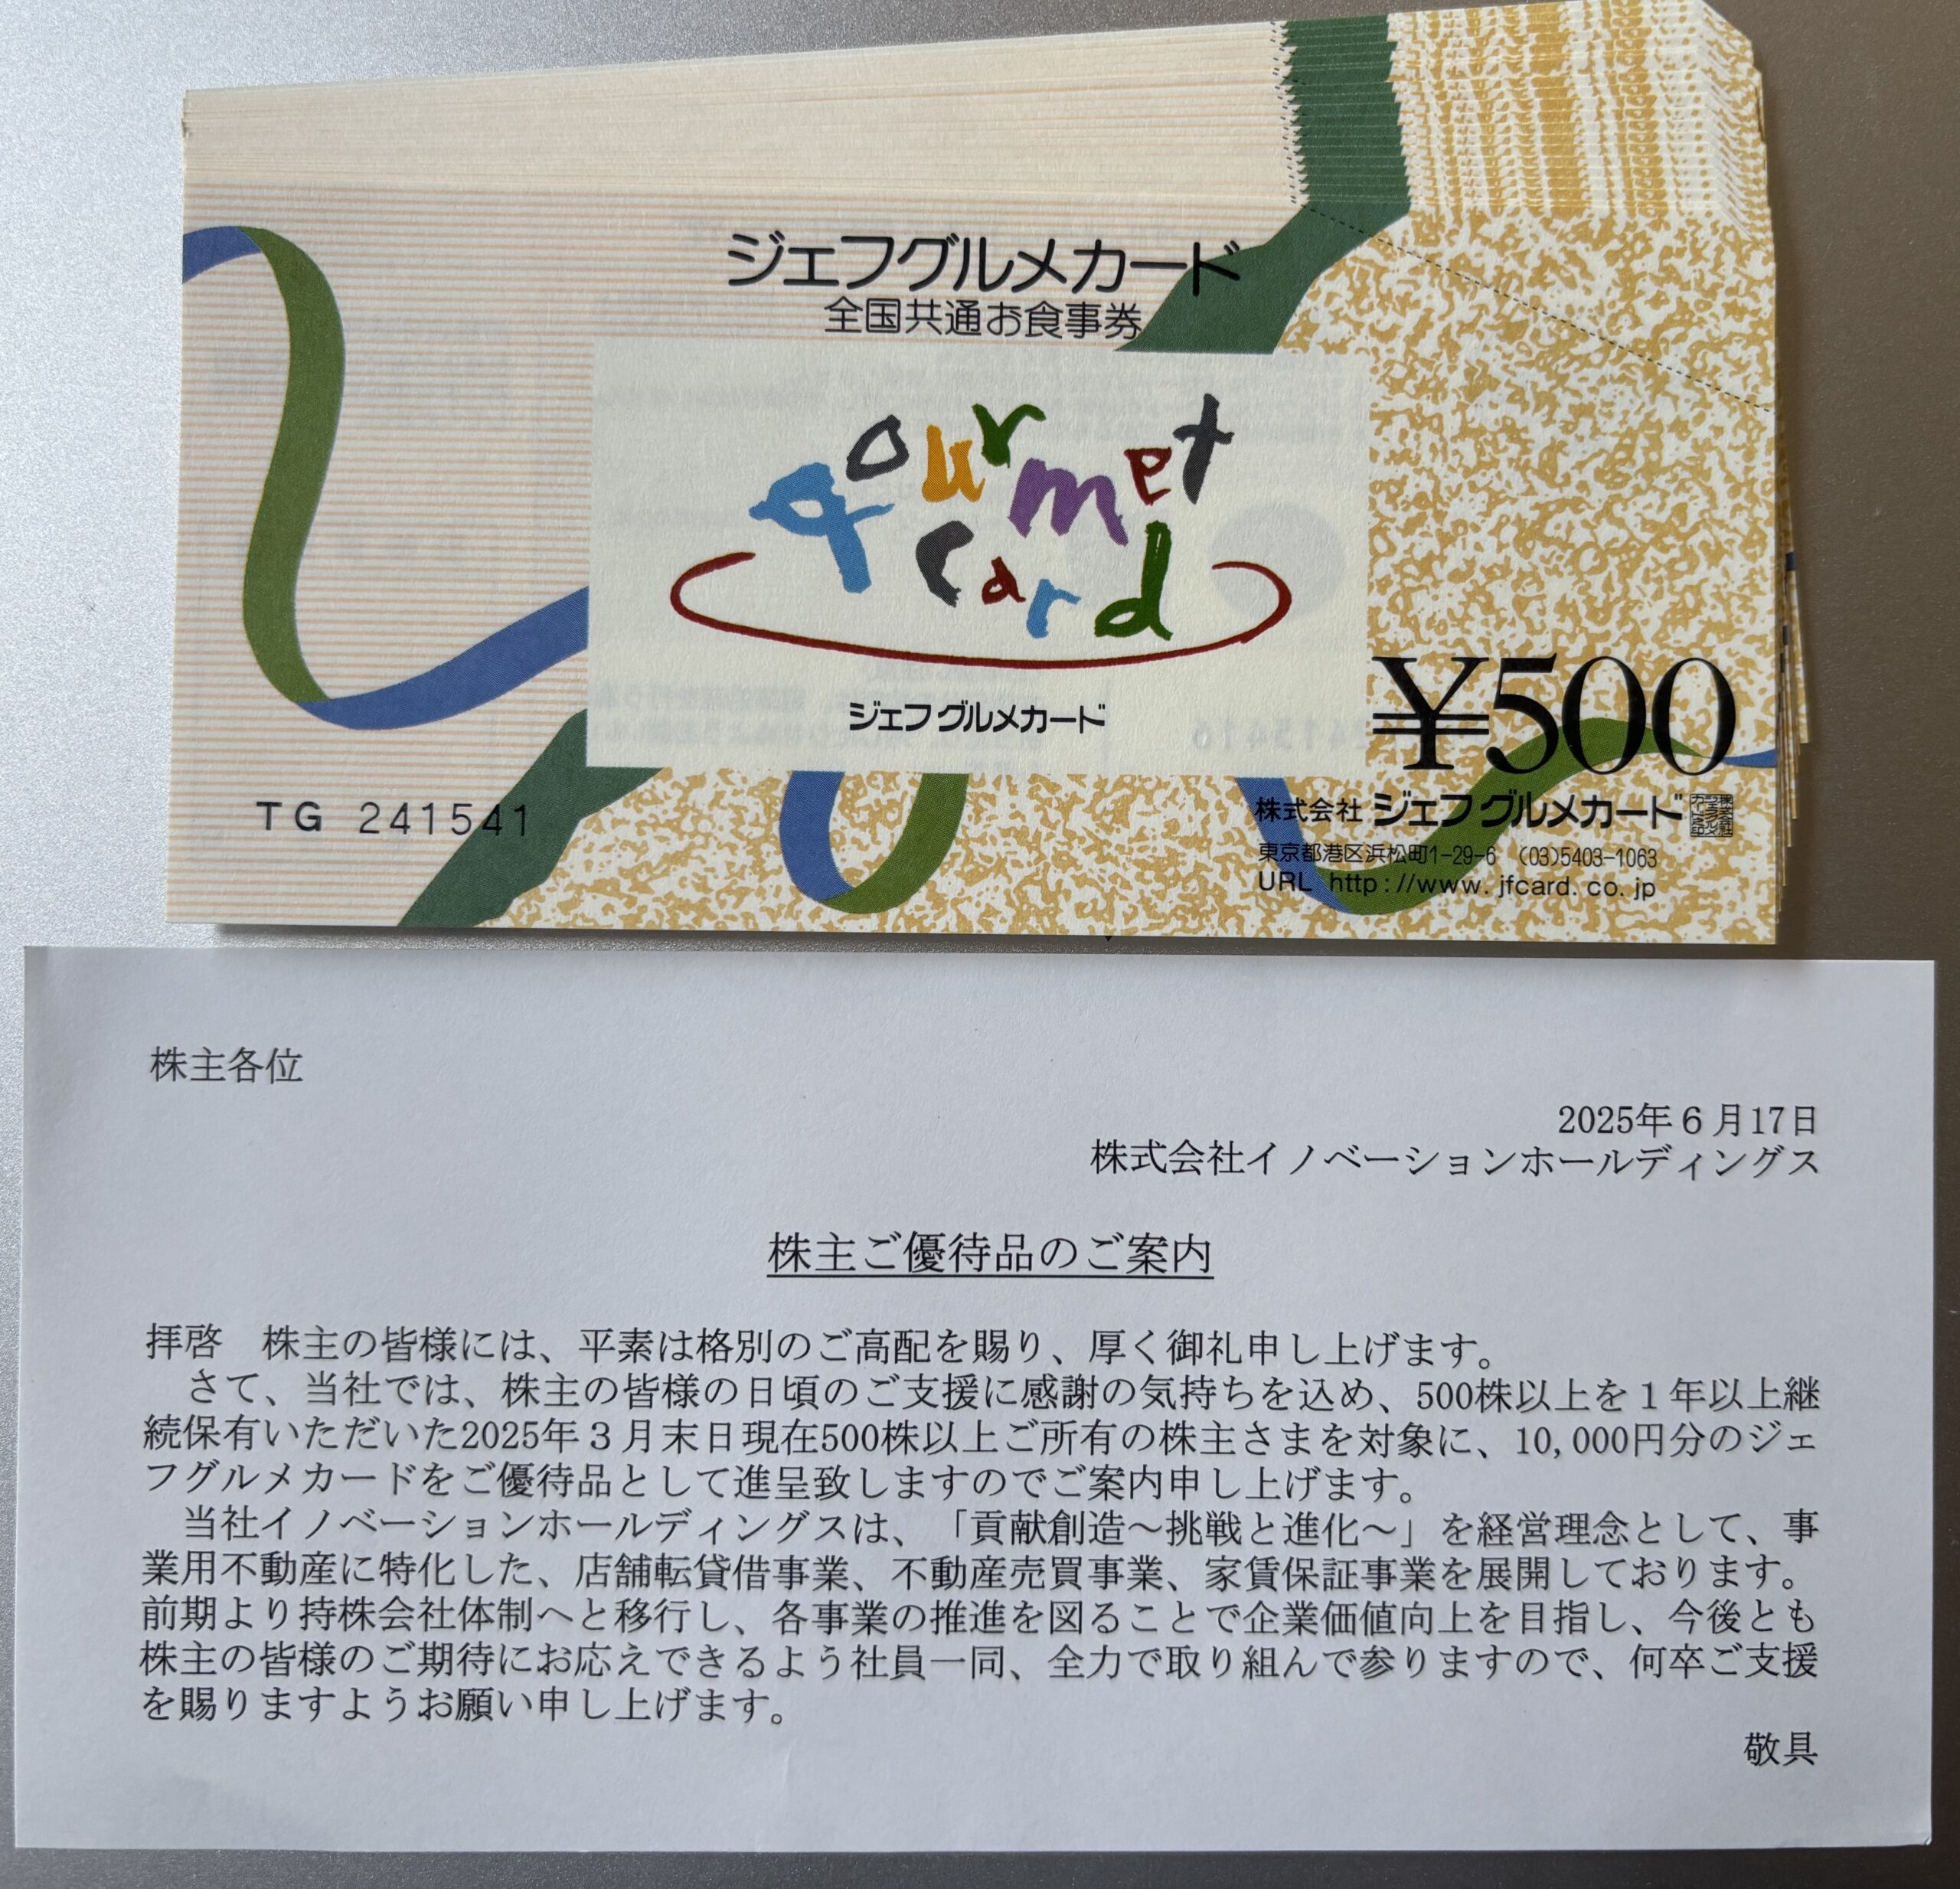 ジェフグルメカード
全国共通お食事券
gourmet
card
ジェフグルメカード
¥500
TG 241541
株式会社 ジェフグルメカード
東京都港区浜松町1-29-6 (03)5403-1063
URL http://www.jfcard.co.jp
株主各位
2025年6月17日
株式会社イノベーションホールディングス
株主ご優待品のご案内
拝啓　株主の皆様には、平素は格別のご高配を賜り、厚く御礼申し上げます。
さて、当社では、株主の皆様の日頃のご支援に感謝の気持ちを込め、500株以上を1年以上継
続保有いただいた2025年3月末日現在500株以上ご所有の株主さまを対象に、10,000円分のジェ
フグルメカードをご優待品として進呈致しますのでご案内申し上げます。
当社イノベーションホールディングスは、「貢献創造～挑戦と進化～」を経営理念として、事
業用不動産に特化した、店舗転貸借事業、不動産売買事業、家賃保証事業を展開しております。
前期より持株会社体制へと移行し、各事業の推進を図ることで企業価値向上を目指し、今後とも
株主の皆様のご期待にお応えできるよう社員一同、全力で取り組んで参りますので、何卒ご支援
を賜りますようお願い申し上げます。
敬具